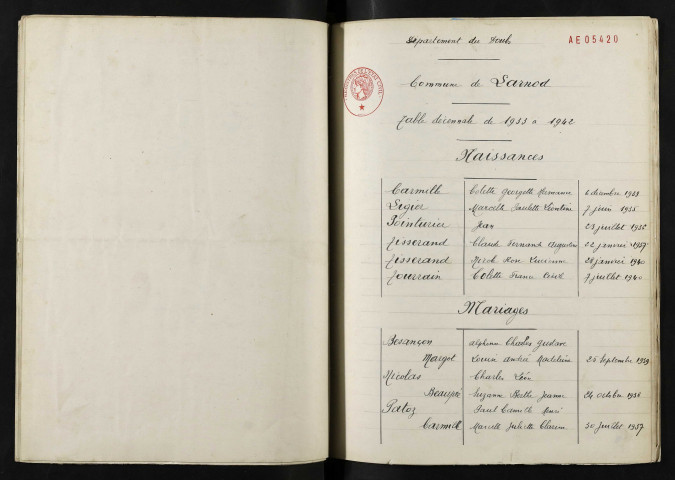 Département du Doubs
AE05420
Commune de Larnod
Table décennale de 1933 à 1942
Naissances
Carmille Colette Georgette 6 décembre 1933
Ligier Marcelle Paulette Léontine 7 juin 1935
Pointurier Jean 23 juillet 1935
Tisserand Claude Fernand Augustin 22 janvier 1937
Tisserand Rose Lucienne 28 janvier 1940
Jourrain Colette France 7 juillet 1940
Mariages
Besançon Alphonse Charles Gustave
Margot Louise Andrée Madeleine 26 septembre 1939
Nicolas Charles Léon
Beaupré Suzanne Berthe Jeanne 24 octobre 1936
Patoz Paul Camille Henri
Carmille Marcelle Juliette 30 juillet 1937